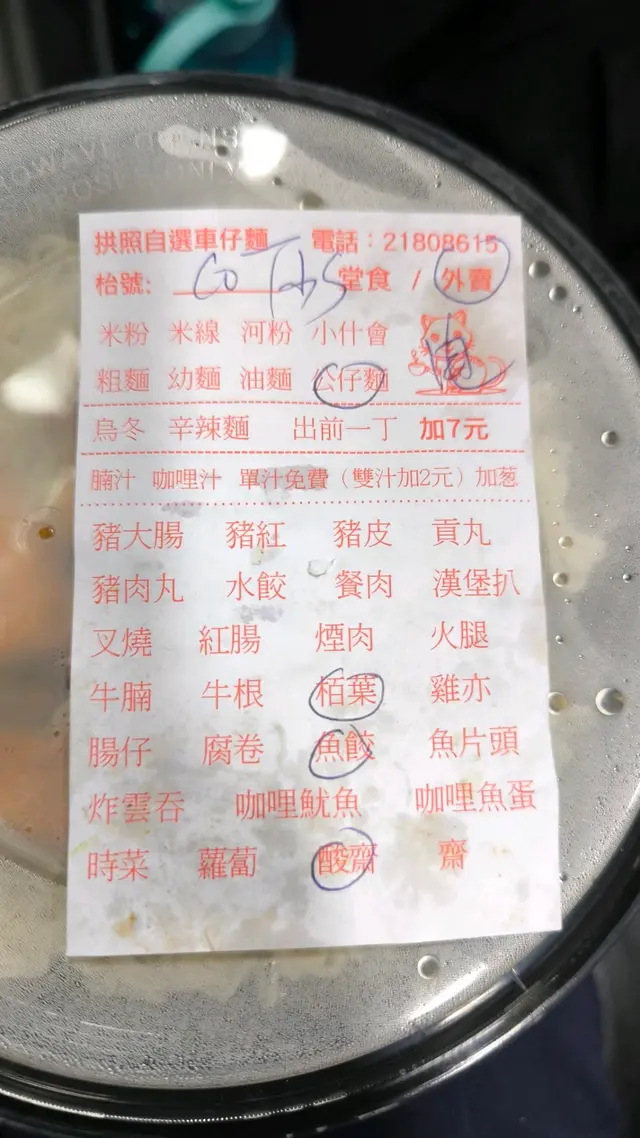 拱照自選車仔麵 電話：21808615
枱號: 堂食 / 外賣
米粉 米線 河粉 小什會
粗麵 幼麵 油麵 公仔麵
烏冬 辛辣麵 出前一丁 加7元
腩汁 咖哩汁 單汁免費（雙汁加2元）加葱
豬大腸 豬紅 豬皮 貢丸
豬肉丸 水餃 餐肉 漢堡扒
叉燒 紅腸 煙肉 火腿
牛腩 牛根 栢葉 雞亦
腸仔 腐卷 魚餃 魚片頭
炸雲吞 咖哩魷魚 咖哩魚蛋
時菜 蘿蔔 酸齋 齋